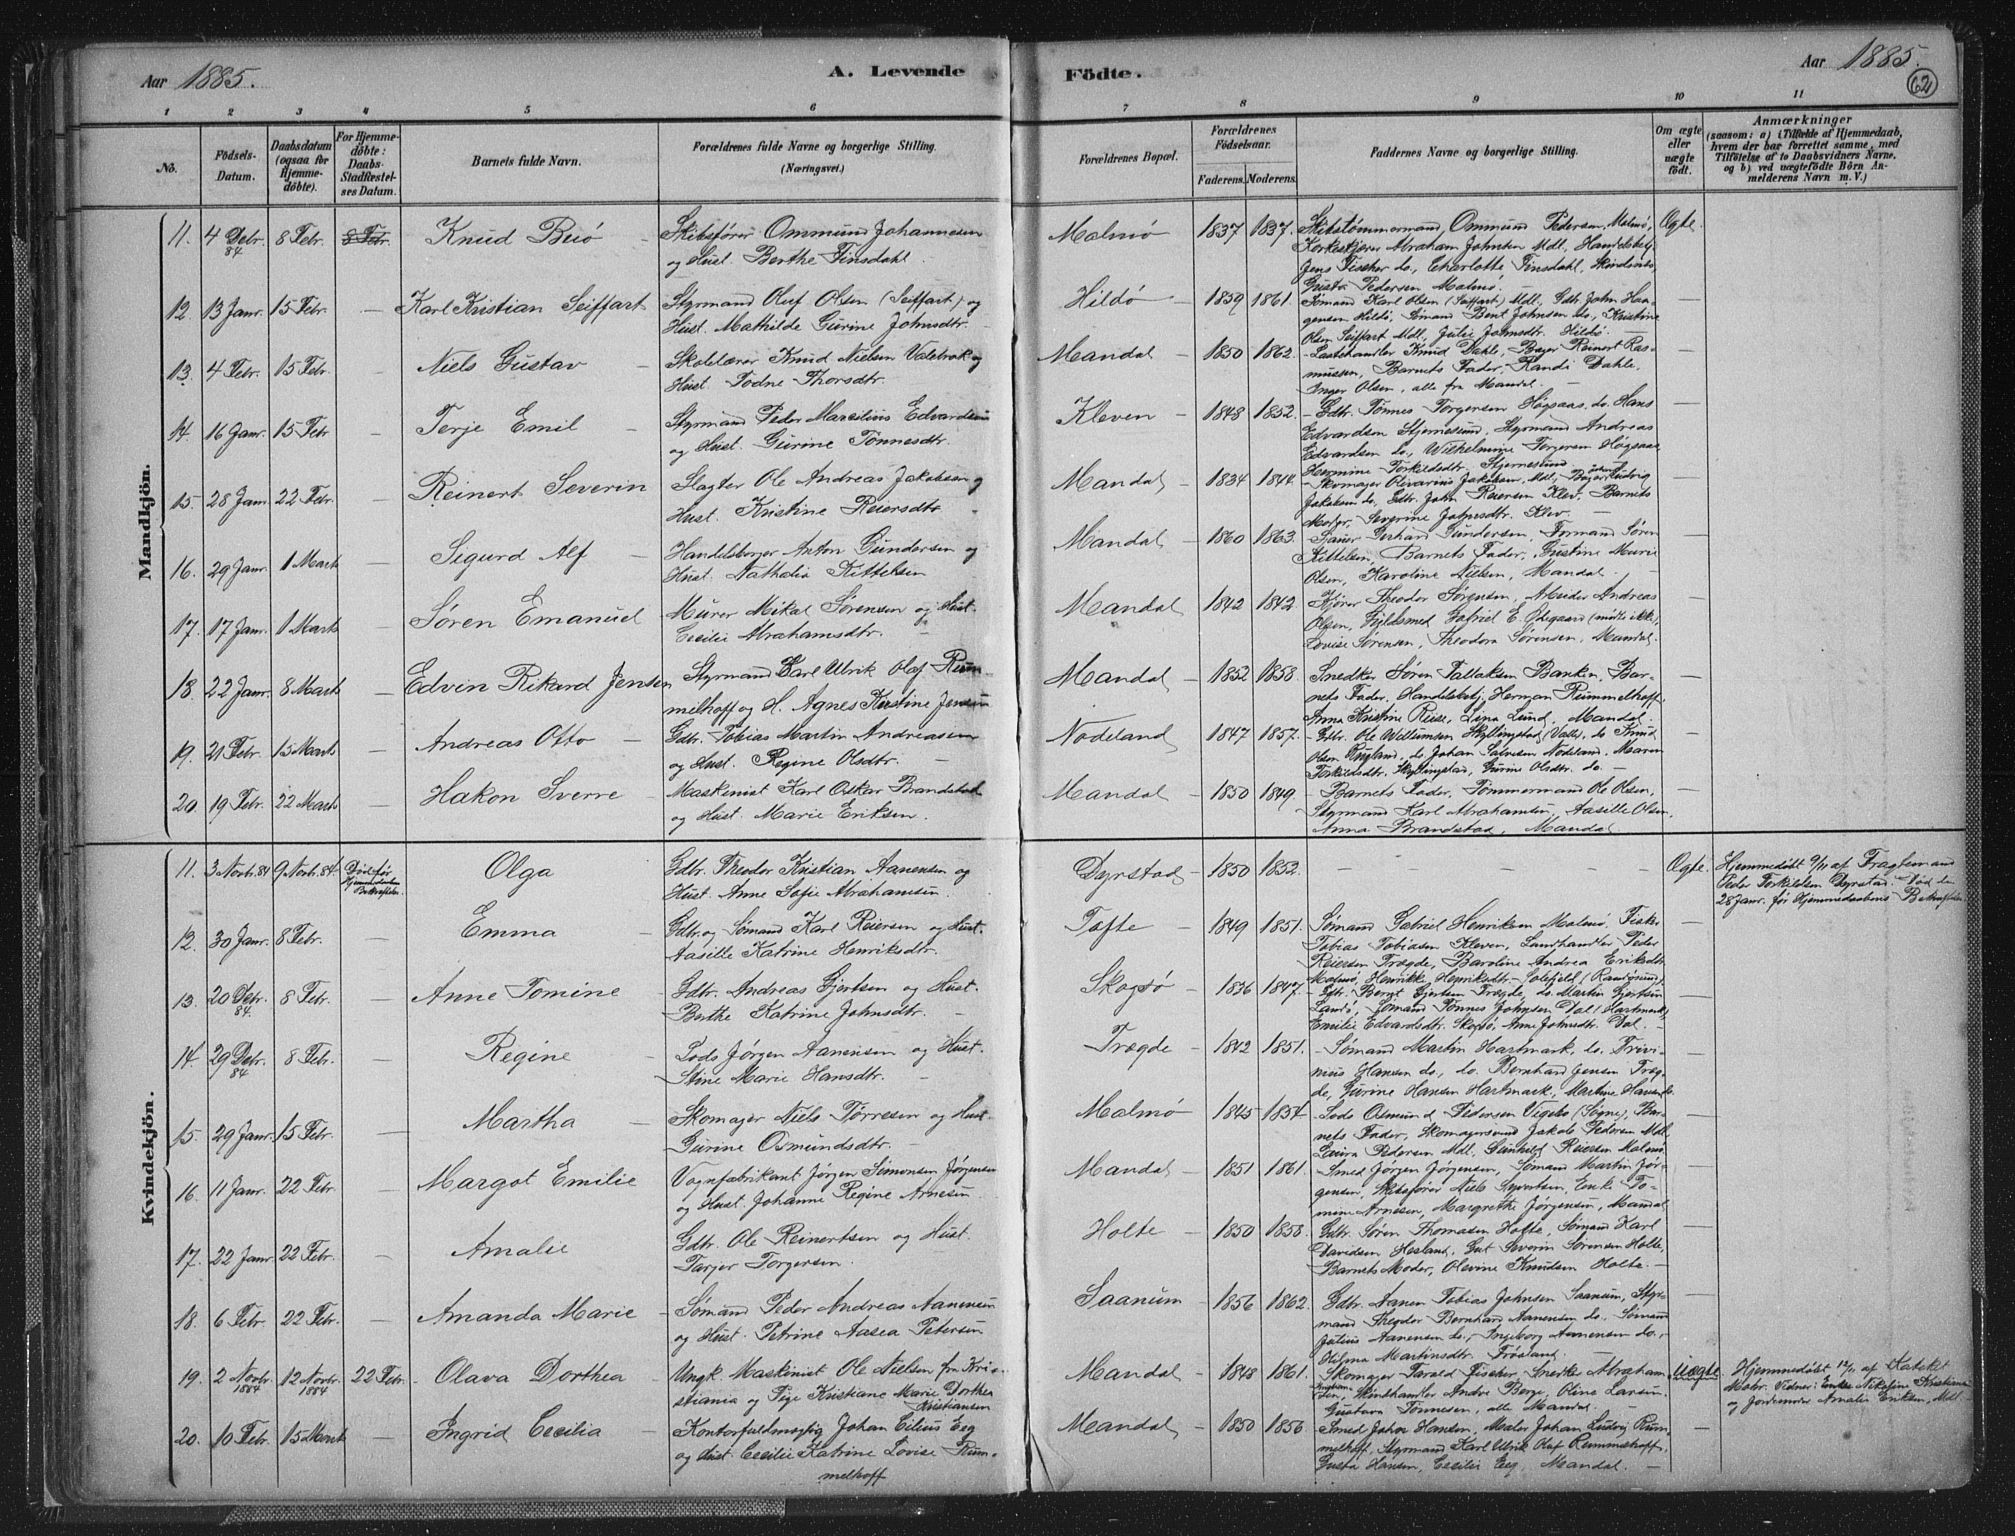 Aar 1885.
A. Levende
Födte.
Aar 1885.
62
1 2 3 4 5 6 7 8 9 10 11
No.
Födsels-Datum.
Daabsdatum (ogsaa for Hjemmedöbte).
For Hjemmedöbte: Daabs-Stadfæstelses Datum.
Barnets fulde Navn.
Forældrenes fulde Navne og borgerlige Stilling.
(Næringsvei.)
Forældrenes Bopæl.
Forældrenes Födselsaar.
Faderens. Moderens.
Faddernes Navne og borgerlige Stilling.
Om ægte eller uægte födt.
Anmærkninger
(saasom: a) i Tilfælde af Hjemmedaab, hvem der har forrettet samme, med Tilföielse af to Daabsvidners Navne, og b) ved uægtefödte Börn Anmelderens Navn m. V.)
Mandkjön.
11. 4 Debr. 84 8 Febr. 8 Febr. Knud Buö Skibsfører Ommund Johannesen
og Hust. Berthe Finsdahl. Malmö 1837 1837. Skibstömmermand Ommund Pedersen, Malmö, Ægte.
Abraham Johnsen Mdl,
Jens Fischer do., Charlotte Finsdahl,
Pedersen Malmö.
12. 13 Janr. 15 Febr. Karl Kristian Seiffart Styrmand Oluf Olsen (Seiffart) og
Hust. Mathilde Gurine Johnsdtr. Hildö 1859 1861. Sömand Karl Olsen (Seiffart) Mdl, Gdtr. John Haa-
gensen Hildö, Sömand Bent Johnsen do, Kristine
Olsen Seiffart Mdl, Julie Johnsdtr. Hildö.
13. 4 Febr. 15 Febr. Niels Gustav Skolelærer Knud Nielsen Valebrok og
Hust. Todne Thorsdtr. Mandal 1850 1862. Knud Dahle, Reinert Ras-
mussen, Barnets Fader, Randi Dahle,
Inger Olsen, alle fra Mandal.
14. 16 Janr. 15 Febr. Terje Emil Styrmand Peder Marcelius Edvardsen
og Hust. Gurine Tönnesdtr. Kleven 1848 1852. Gdtr. Tönnes Torgersen Högsaas, do. Hans
Edvardsen Stjernesund, Styrmand Andreas
Edvardsen do., Wilhelmine Torgersen Högsaas
Hermine Torkildsdtr. Stjernesund
15. 28 Janr. 22 Febr. Reinert Severin Slagter Ole Andreas Jakobsen og
Hust. Kristine Reiersdtr. Mandal 1834 1844. Skomager Olivarius Jakobsen, Mdl, Ludvig
Jakobsen do, Gdtr. John Reiersen Klev, Barnets
Moder, Severine Johnsdtr. Klev.
16. 29 Janr. 1 Marts Sigurd Alf Handelsborger Anton Gundersen og
Hust. Nathalia Kittelsen Mandal 1860 1863. Gerhard Gundersen, Formand Sören
Kittelsen, Barnets Fader, Gustine Marie
Olsen, Karoline Nielsen, Mandal.
17. 17 Janr. 1 Marts Sören Emanuel Murer Mikal Sörensen og Hust.
Cecilie Abrahamsdtr. Mandal 1842 1842. Kjörer Theodor Sörensen, Arbeider Andreas
Olsen, Gabriel E. Ödegaard (mödte ikke),
Lovise Sörensen, Theodora Sörensen, Mandal.
18. 22 Janr. 8 Marts Edvin Rikard Jensen Styrmand Carl Ulrik Olaf Rum-
melhoff og H. Agnes Kirstine Jensen Mandal 1852 1858. Snedker Sören Tallaksen Banken, Bar-
nets Fader, Handelsbetj. Herman Rummelhoff,
Anna Kristine Reise, Lina Lund, Mandal.
19. 21 Febr. 15 Marts Andreas Otto Gdtr. Tobias Martin Andreasen
og Hust. Regine Olsdtr. Nödeland 1847 1857. Gdtr. Ole Willumsen Skyllingstad (Valle), do Knud
Olsen, do. Johan Salvesen Nödeland, Maren
Torkildsdtr. Skyllingstad, Gurine Olsdtr. do.
20 19 Febr. 22 Marts Hakon Sverre Maskinist Karl Oskar Brandstad
og Hust. Marie Eriksen. Mandal 1850 1849. Barnets Fader, Tömmermand Ole Olsen,
Styrmand Karl Abrahamsen, Aasille Olsen,
Anna Brandstad, Mandal
Kvindekjön.
11. 3 Novb. 84 9 Novb. 84. Död før Hjemmedaabens Bekræftelse. Olga Gdtr. Theodor Kristian Aanensen og
Hust. Anne Sofie Abrahamsen Dyrstad 1850 1852. Ægte. Hjemmedöbt 9/11 af
Peder Torkildsen Dyrstad. Död den
28 Janr. før Hjemmedaabens Bekræftelse
12. 30 Janr. 8 Febr. Emma Gdtr. og Sömand Karl Reiersen og Hust.
Aasille Katrine Henriksdtr. Tofte 1849 1851. Sömand Gabriel Henriksen Malmö, Fisker
Tobias Tobiasen Kleven, Landhandler Peder
Reiersen Trægde, Baroline Andrea Eriksdtr.
Malmö, Henrikke Henriksdtr.
13. 20 Debr. 84. 8 Febr. Anne Tomine Gdtr. Andreas Gjertsen og Hust.
Berthe Katrine Johnsdtr. Skogsö 1836 1847. Gdtr. Bergt Gjertsen Trægde, do. Martin Gjertsen
Landö, Sömand Tönnes Johnsen Dal
Emilie Edvardsdtr. Skogsö, Anne Johnsdtr. Dal.
14. 29 Debr. 84 8 Febr. Regine Lods Jörgen Aanensen og Hust.
Stine Marie Hansdtr. Trægde 1842 1851. Sömand Martin Hartmark, do.
Hansen do., do. Bernhard Jensen Træg-
de, Gurine Hansen Hartmark, Martine Hansen do.
15. 29 Janr. 15 Febr. Martha Skomager Niels Tørresen og Hust.
Gurine Osmundsdtr. Malmö 1845 1854. Lods Osmund Pedersen Vigebo (Sögne), Bar-
nets Fader, Skomagersvend Jakob Pedersen Mdl.
Laura Pedersen Mdl. Gunhild Reiersen Malmö.
16. 11 Janr. 22 Febr. Margot Emilie Vognfabrikant Jörgen Simonsen Jörgensen
og Hust. Johanne Regine Arnesen. Mandal 1851 1861. Smed Jörgen Jörgensen, Sömand Martin Jör-
gensen, Skibsfører Niels Syvertsen, Enke To-
mine Arnesen, Margrethe Jörgensen, Mandal
17. 22 Janr. 22 Febr. Amalie Gdtr. Ole Reinertsen og Hust.
Tarjer Torgersen. Holte 1850 1858. Gdtr. Sören Thomasen Holte, Sömand Karl
Davidsen Hesland, Gut Severin Sörensen Holte,
Barnets Moder, Olevine Knudsen Holte.
18. 6 Febr. 22 Febr. Amanda Marie Sömand Peder Andreas Aanensen
og Hust. Petrine Aasea Petersen Saanum 1856 1862. Gdtr. Aanen Tobias Johnsen Saanum, Styr-
mand Theodor Bernhard Aanensen do., Sömand
Julius Aanensen do., Ingeborg Aanensen do.,
Hilma Martinsdtr. Fröaland.
19. 2 Novbr. 1884 12 Novbr. 1884 22 Febr. Olava Dorthea Ungk. Maskinist Ole Nielsen fra Kri-
stiania og Pige Kristiane Marie Dorthea
Kristiansen Mandal 1848 1861. Skomager Tarald Fischer, Snedker Abraham
Vinhandler Andre Berge, Oline Larsen,
Gustava Tönnesen, alle Mandal. Uægte Hjemmedöbt 12/11 af
Vidner: Enke Nikoline Kristiansen
og Jordemoder Amalie Eriksen, Mdl.
20. 10 Febr. 15 Marts Ingrid Cecilia Kontorfuldmægtig Johan Cilius Eeg
og Hust. Cecilie Katrine Lovise Rum-
melhoff Mandal 1850 1856. Smed Johan Hansen, Maler Johan Ludvig Rum-
melhoff, Styrmand Karl Ulrik Olaf Rummelhoff,
Gusta Hansen, Cecilie Eeg, Mandal.